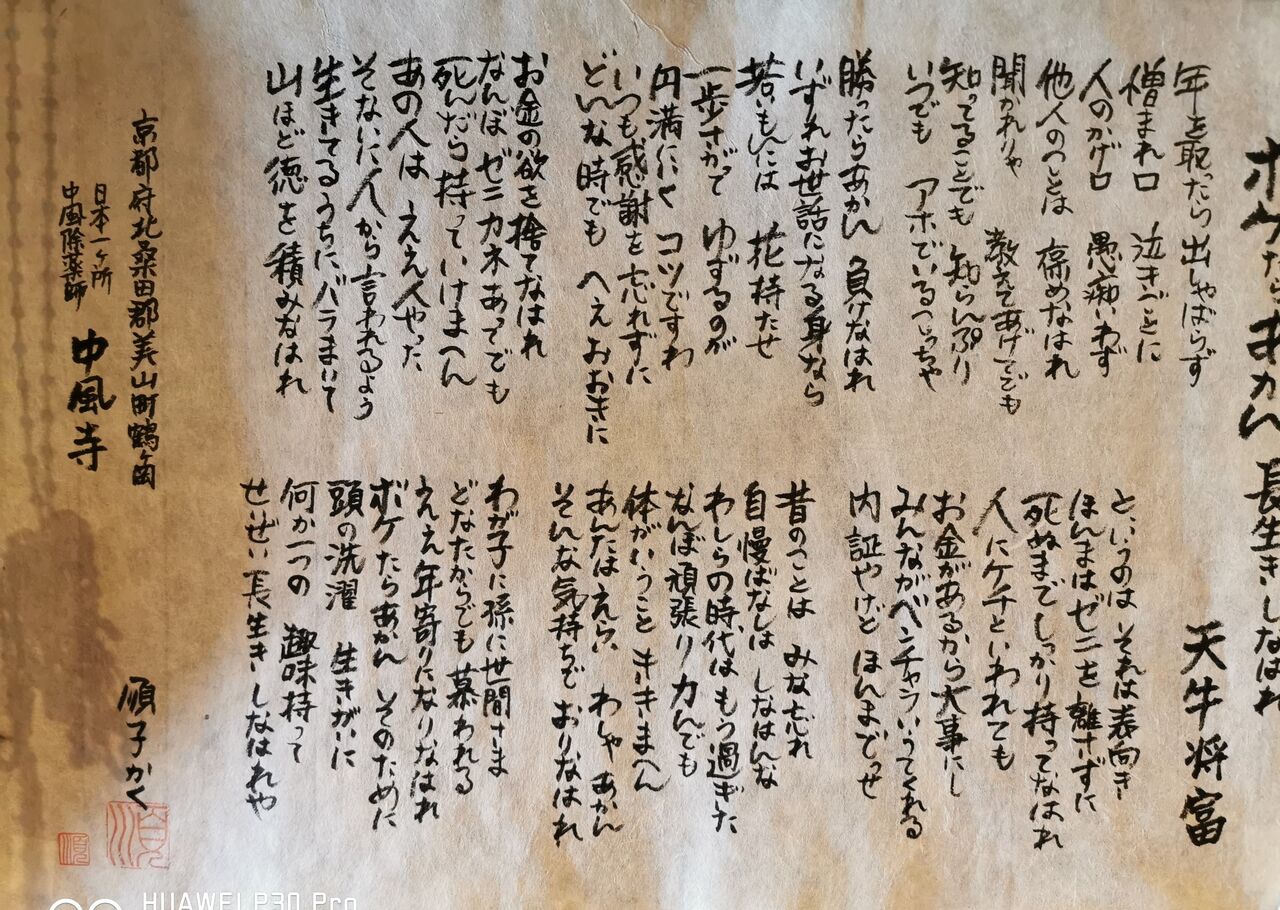 ボケたらあかん 長生きしなはれ
天牛将富
年を取ったら出しゃばらず
憎まれ口 泣きべそに
人のかげ口 愚痴いわず
他人のことは 褒めなはれ
聞かれりゃ 教えてあげてでも
知ってることでも 知らんぷり
いつでも アホでいるこっちゃ
勝ったらあかん 負けなはれ
いずれお世話になる身なら
若いもんには 花持たせ
一歩さがって ゆずるのが
円満にいく コツですわ
いつも感謝を 忘れずに
どんな時でも へえ おおきに
お金の欲を 捨てなはれ
なんぼ ゼニカネあってでも
死んだら持っていけまへん
あの人は ええ人やった
そないに人から 言われるよう
生きてるうちに バラまいて
山ほど徳を 積みなはれ
というのは それは表向き
ほんまはゼニを 離さずに
死ぬまでしっかり持ってなはれ
人にケチといわれても
お金があるから大事にし
みんながベンチャラいうてくれる
内証やけど ほんまでっせ
昔のことは みな忘れ
自慢ばなしは しなはんな
わしらの時代はもう過ぎた
なんぼ頑張り 力んでも
体がいうこと ききまへん
あんたはえらい わしゃあかん
そんな気持ちで おりなはれ
わが子に孫に世間さま
どなたからでも 慕われる
ええ年寄りになりなはれ
ボケたらあかん そのために
頭の洗濯 生きがいに
何か一つの 趣味持って
せいぜい長生き しなはれや
京都府北桑田郡美山町鶴ヶ岡
日本一ヶ所
中風除薬師
中風寺
順子かく
順
順
HUAWEI P30 Pro